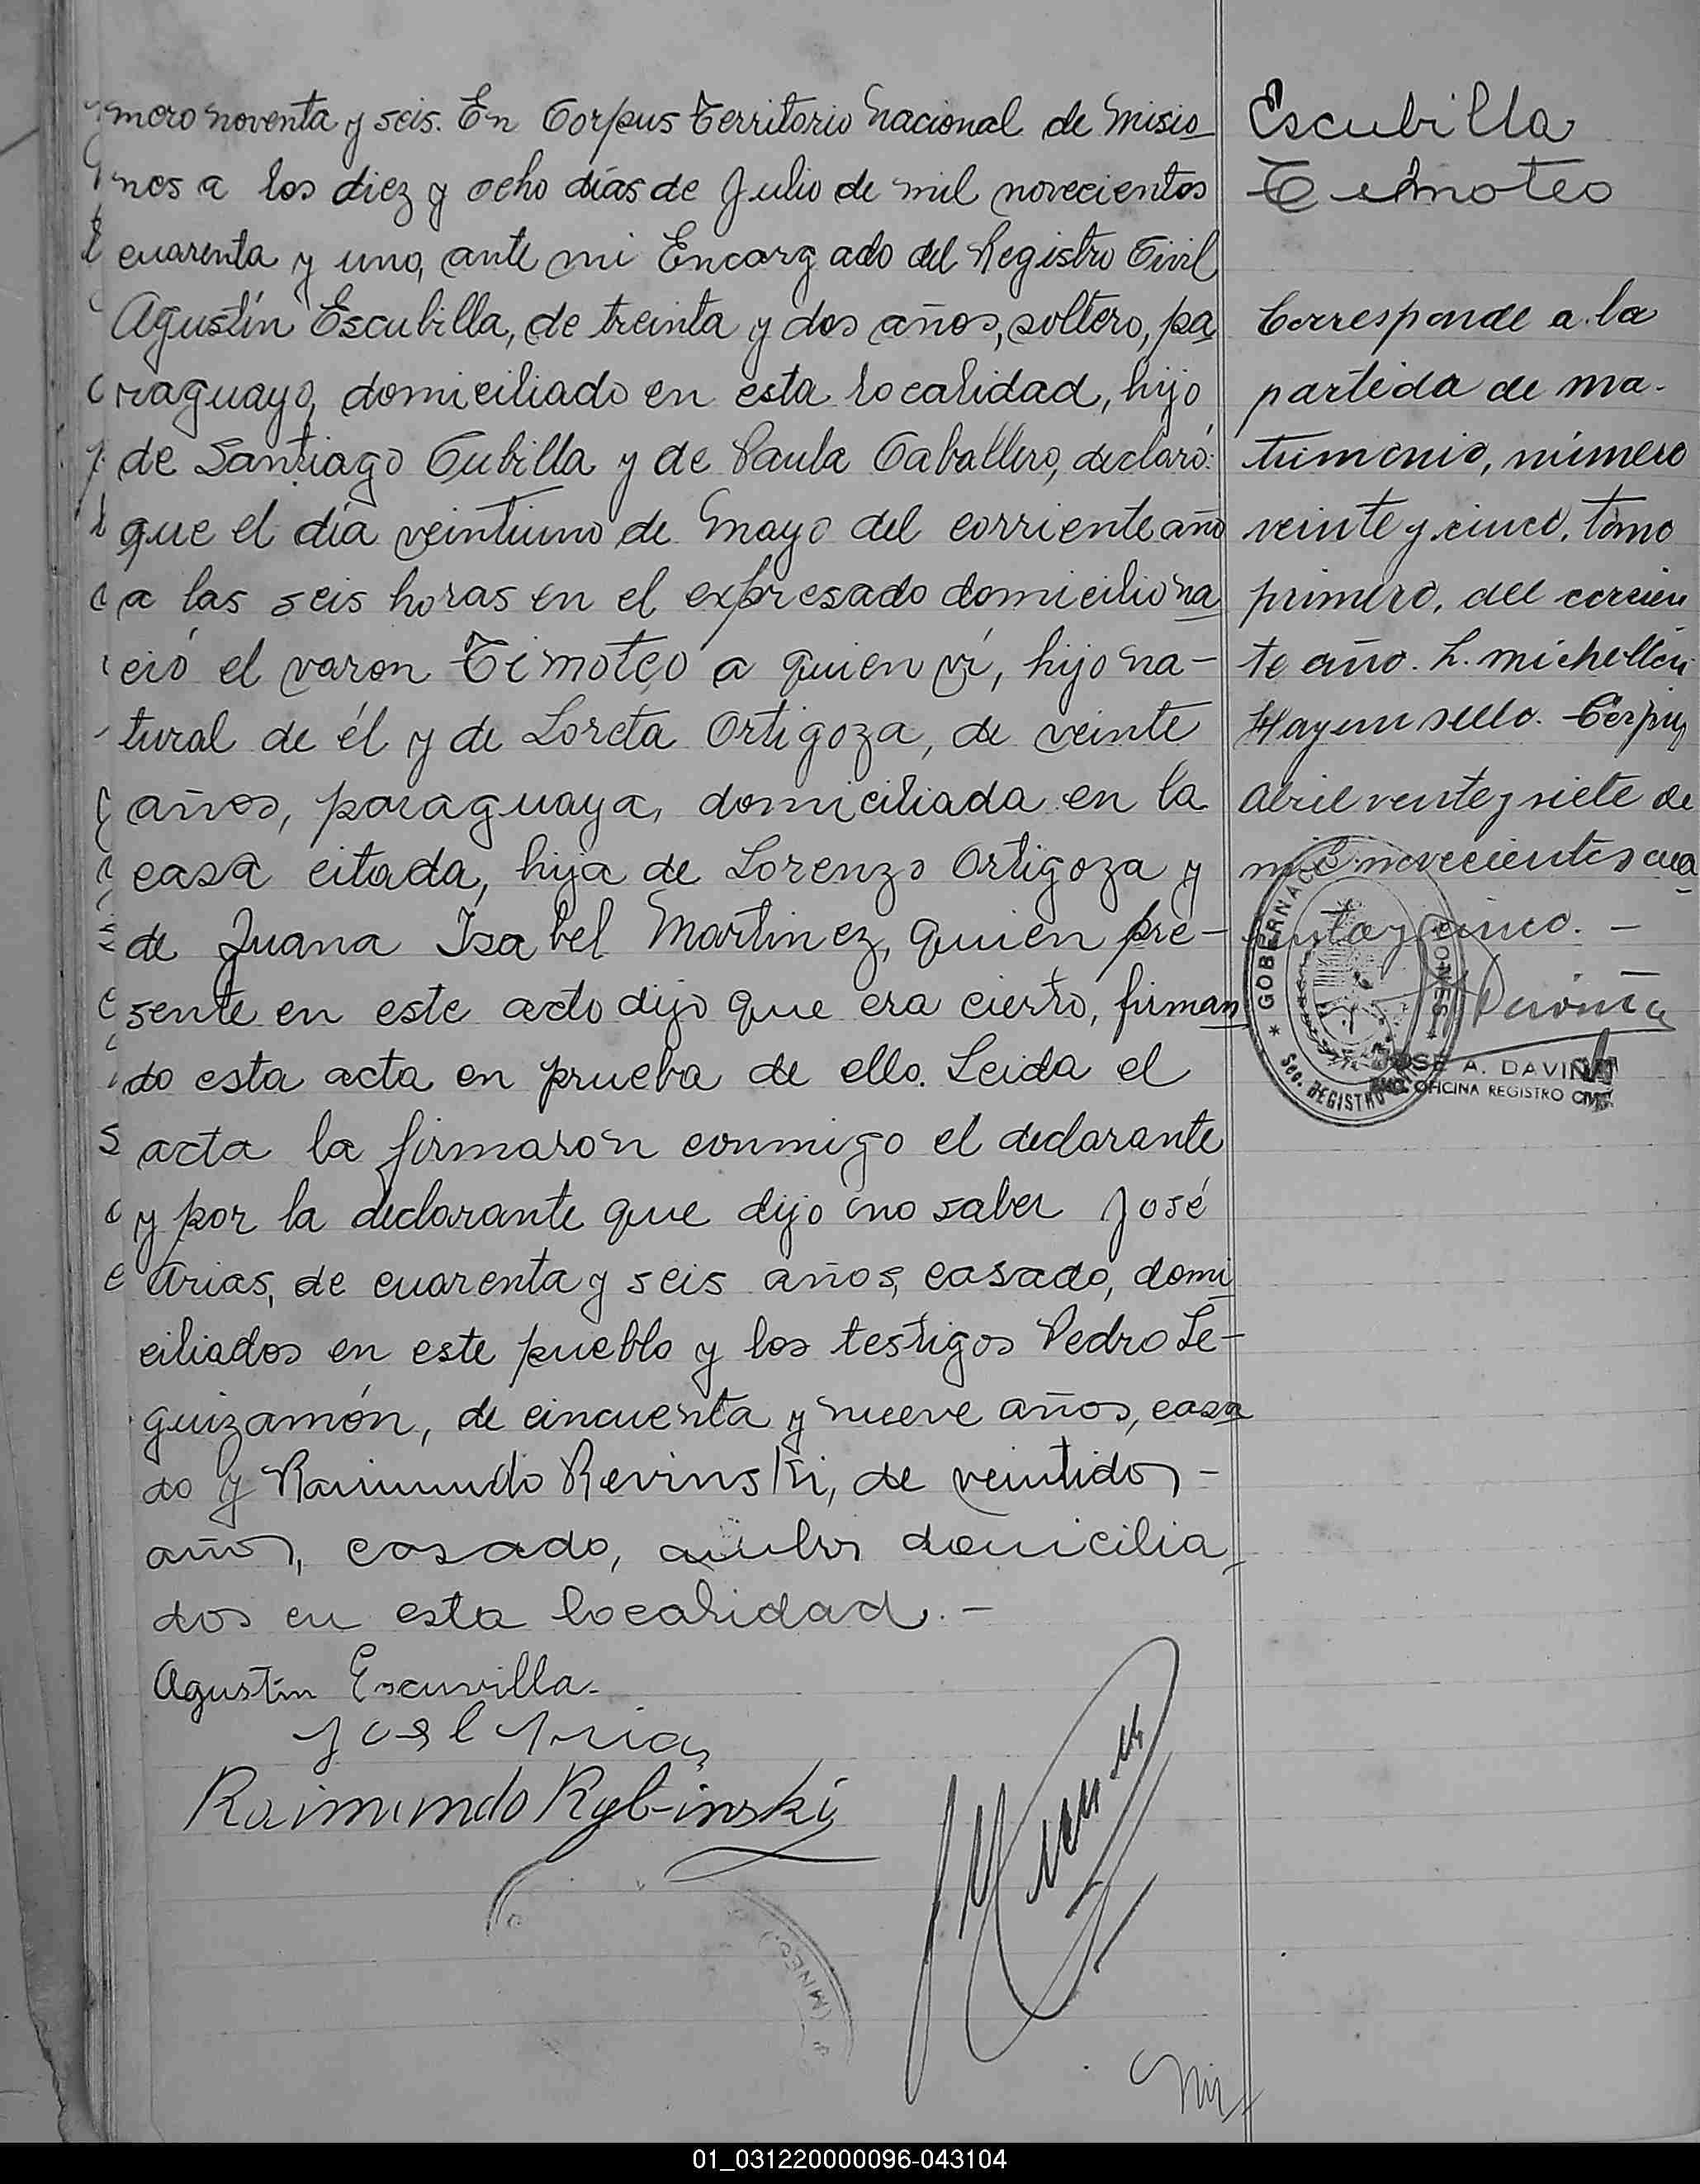 mero noventa y seis. En Corpus Territorio Nacional de Misio
nes a los diez y ocho días de Julio de mil novecientos
cuarenta y uno, ante mi Encargado del Registro Civil
Agustín Escubilla, de treinta y dos años, soltero, pa
raguayo, domiciliado en esta localidad, hijo
de Santiago Cubilla y de Paula Caballero, declaró:
que el día veintiuno de Mayo del corriente año
a las seis horas en el expresado domicilio na
ció el varon Timoteo a quien ví, hijo na-
tural de él y de Loreta Ortigoza, de veinte
años, paraguaya, domiciliada en la
casa citada, hija de Lorenzo Ortigoza y
de Juana Isabel Martinez, quien pre-
sente en este acto dijo que era cierto, firman
do esta acta en prueba de ello. Leida el
acta la firmaron conmigo el declarante
y por la declarante que dijo no saber José
Arias, de cuarenta y seis años, casado, domi
ciliados en este pueblo y los testigos Pedro Le-
guizamón, de cincuenta y nueve años, casa
do y Raimundo Revinski, de veintidos -
años, casado, ambos domicilia
dos en esta localidad. -
Agustín Escuvilla.
José Arias
Raimundo Rybinski
Escubilla
Timoteo
Corresponde a la
partida de ma-
trimonio, número
veinte y cinco, tomo
primero, del corrien
te año. L. Michellon
Hay un sello. Corpus
Abril veinte y siete de
mil novecientos cua
renta y cinco. -
GOBERNAC
MISIONES
Sec. REGISTRO
JOSE A. DAVIÑA
OFICINA REGISTRO CIVIL
01_031220000096-043104